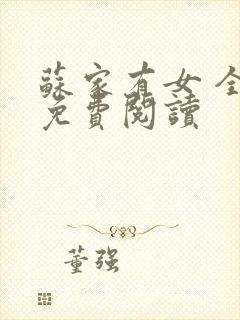 蘇家有女 全
免費閱讀
董强